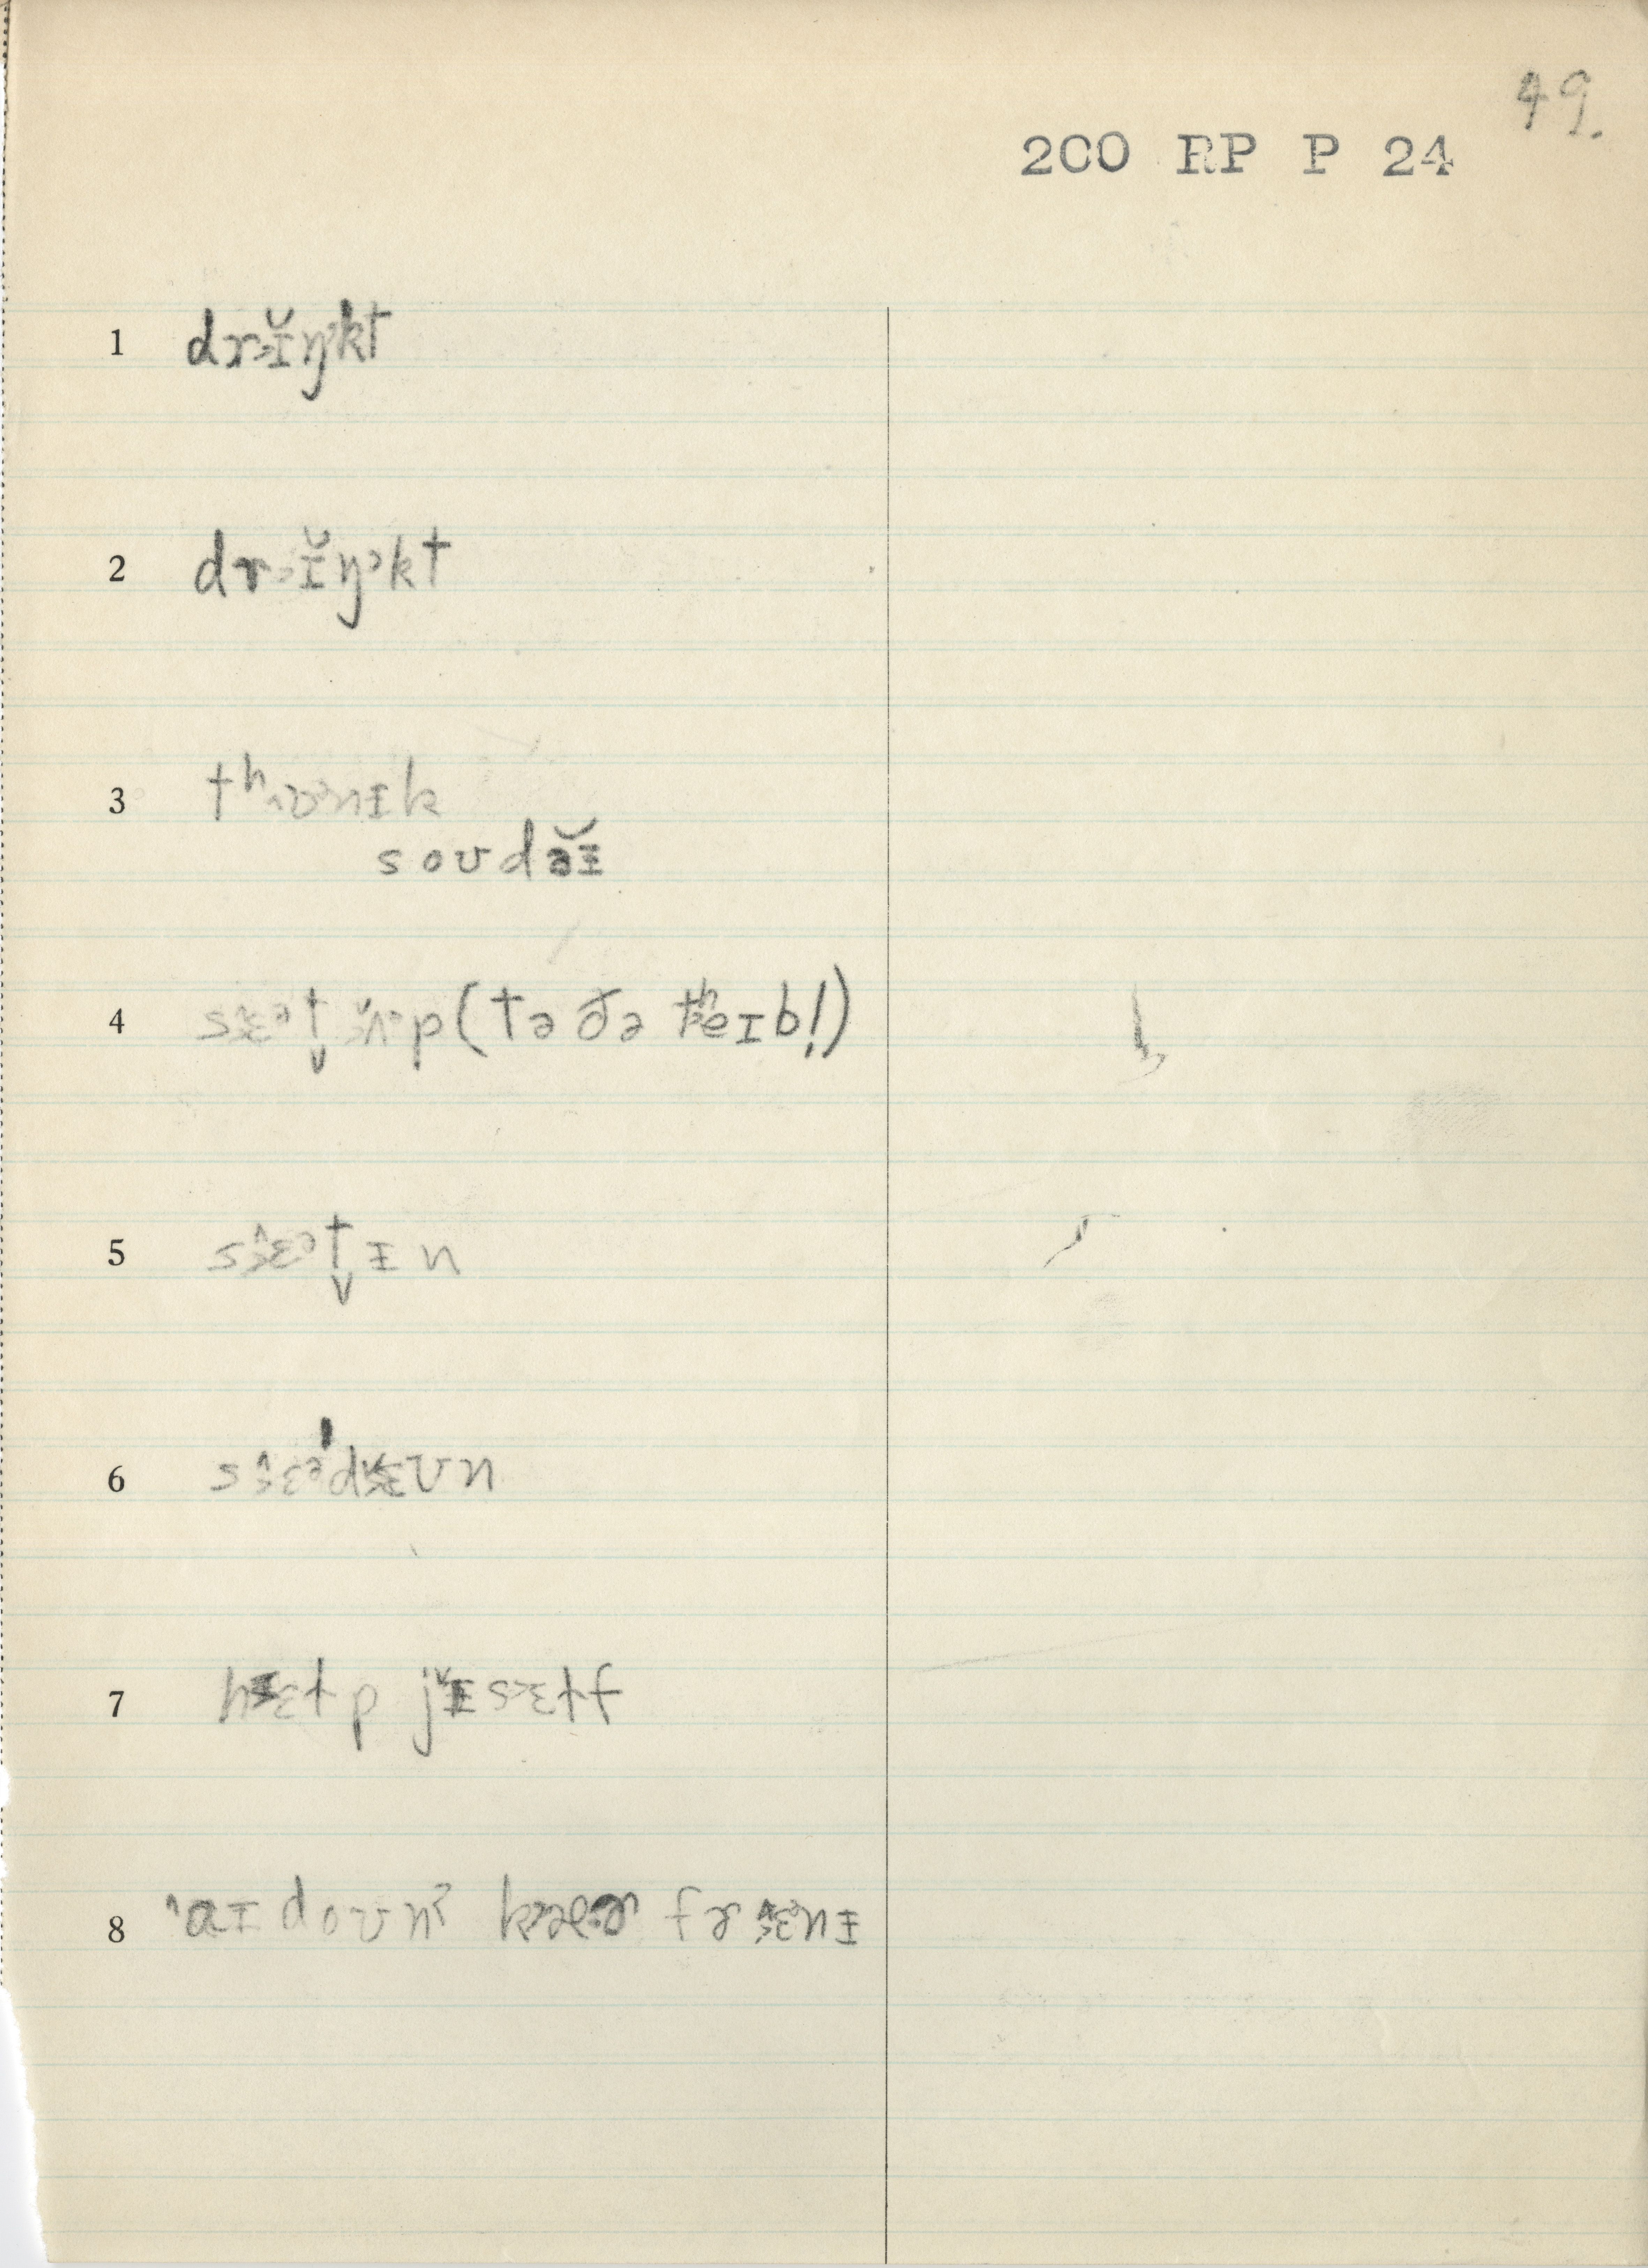 49.
200 RP P 24
1 drɪ̆ŋkt
2 drɪ̆ŋᵊkt
3 tʰɒnɪk
soʊdəɪ̆
4 sɛᵊt̬ ʌᵊp (tə ðə tʰeɪbl̩)
5 sɛ̂ᵊt̬ ɪn
6 sɛ̂ᵊ'dɛʊn
7 hɛɫp jɪ̌sɛɫf
8 ˈaɪ doʊnˀ kæər fr ɛ̂ᵊnɪ